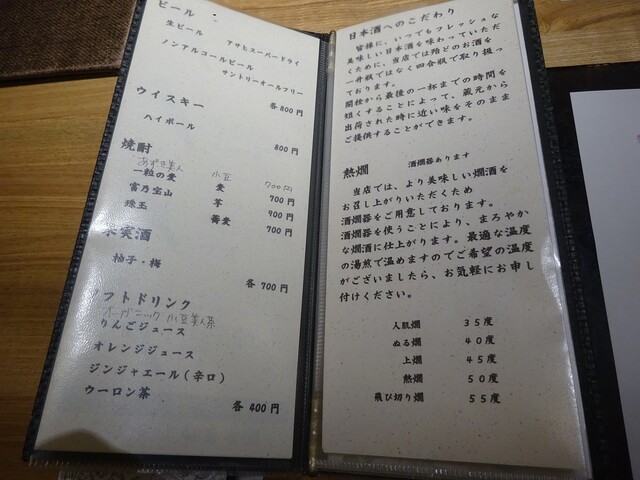 ビール
生ビール アサヒスーパードライ
ノンアルコールビール
サントリーオールフリー
各800円
ウイスキー
ハイボール
800円
焼酎
あずき美人 小豆 700円
一粒の麦 麦 700円
富乃宝山 芋 900円
珠玉 蕎麦 700円
果実酒
柚子・梅
各 700円
フトドリンク
オーガニック 小豆美人茶
りんごジュース
オレンジジュース
ジンジャエール(辛口)
ウーロン茶
各 400円
日本酒へのこだわり
皆様に、いつでもフレッシュな
美味しい日本酒を味わっていただ
くために、当店では殆どのお酒を
一升瓶ではなく四合瓶で取り扱っ
ております。
開栓から最後の一杯までの時間を
短くすることによって、蔵元から
出荷された時に近い味をそのまま
ご提供することができます。
熱燗 酒燗器あります
当店では、より美味しい燗酒を
お召し上がりいただくため
酒燗器をご用意しております。
酒燗器を使うことにより、まろやか
な燗酒に仕上がります。最適な温度
の湯煎で温めますのでご希望の温度
がございましたら、お気軽にお申し
付けください。
人肌燗 35度
ぬる燗 40度
上燗 45度
熱燗 50度
飛び切り燗 55度